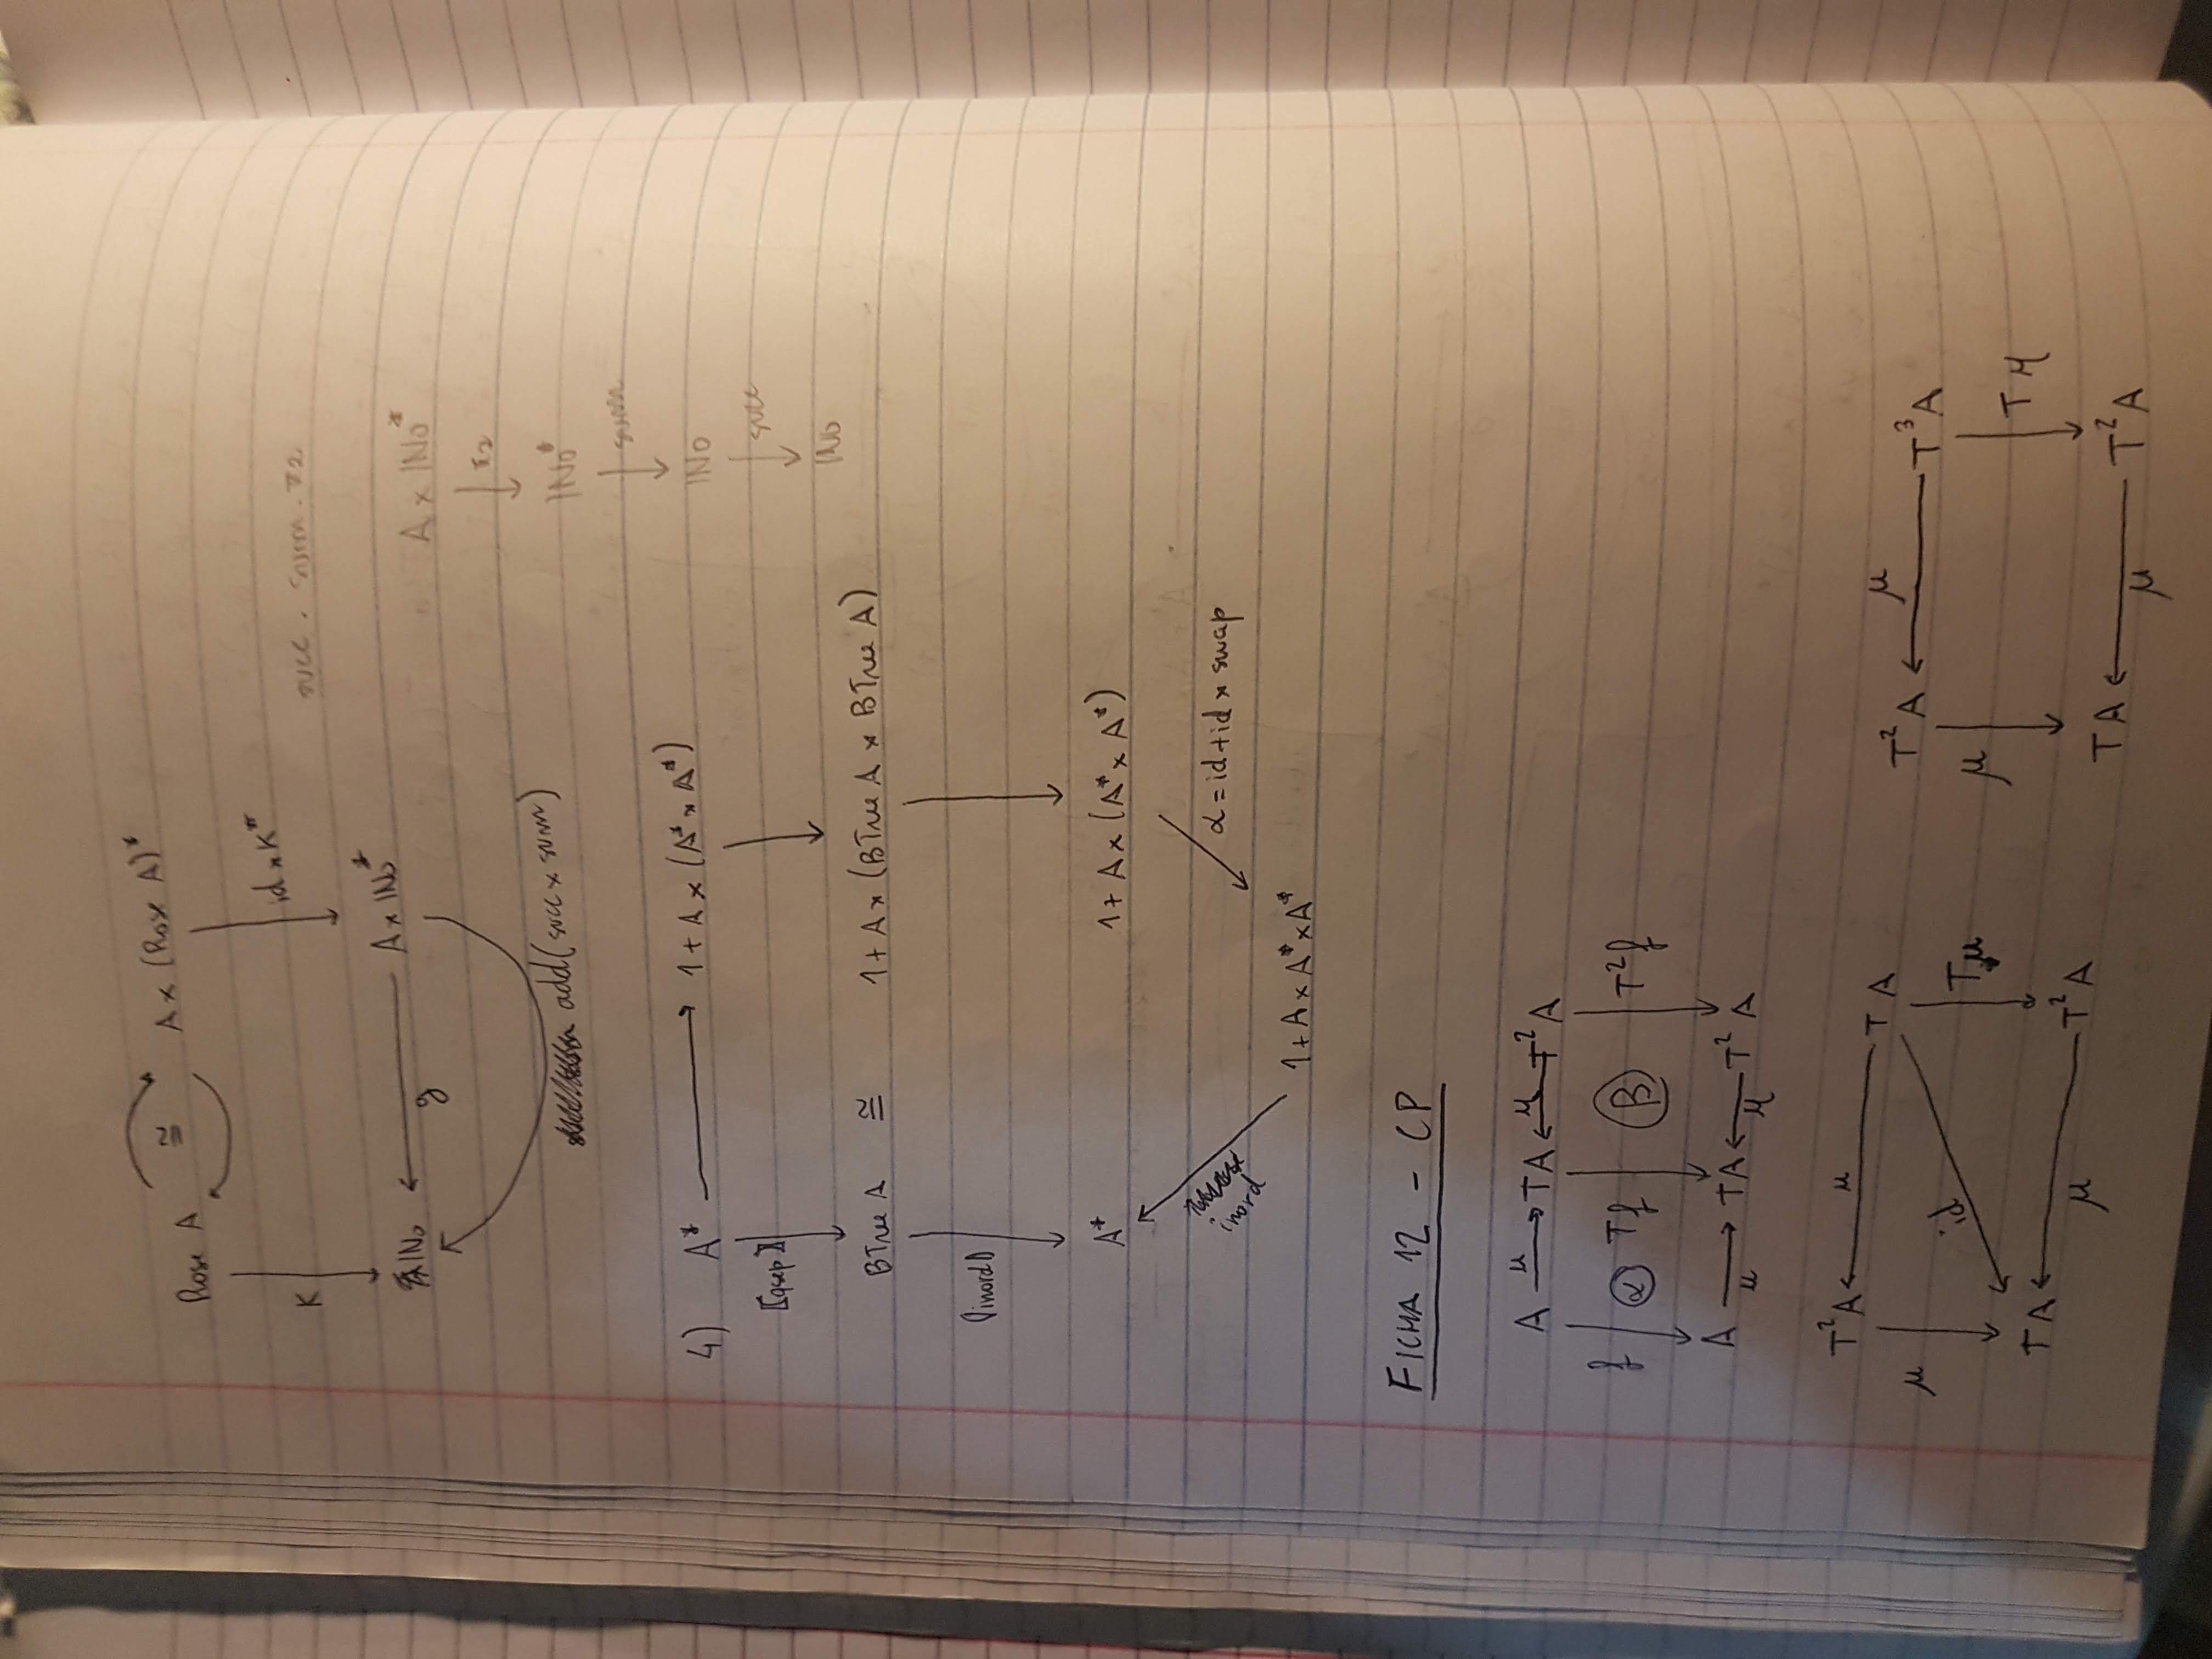 Rose A ≅ A × (Rose A)*
K
id × K*
succ . summ . π2
ℕ₀ g A × ℕ₀*
add(succ × summ)
A × ℕ₀*
π2
ℕ₀*
summ
ℕ₀
succ
ℕ₀
4) A* → 1 + A × (A* × A*)
⟦qsep⟧
BTree A ≅ 1 + A × (BTree A × BTree A)
⦇inord⦈
A* 1 + A × (A* × A*)
inord
α = id + id × swap
1 + A × A* × A*
FICHA 12 - CP
A μ→ TA ←μ T²A
f α Tf β T²f
A →μ TA ←μ T²A
T²A ←μ TA
μ id Tμ
TA ←μ T²A
T²A ←μ T³A
μ Tμ
TA ←μ T²A